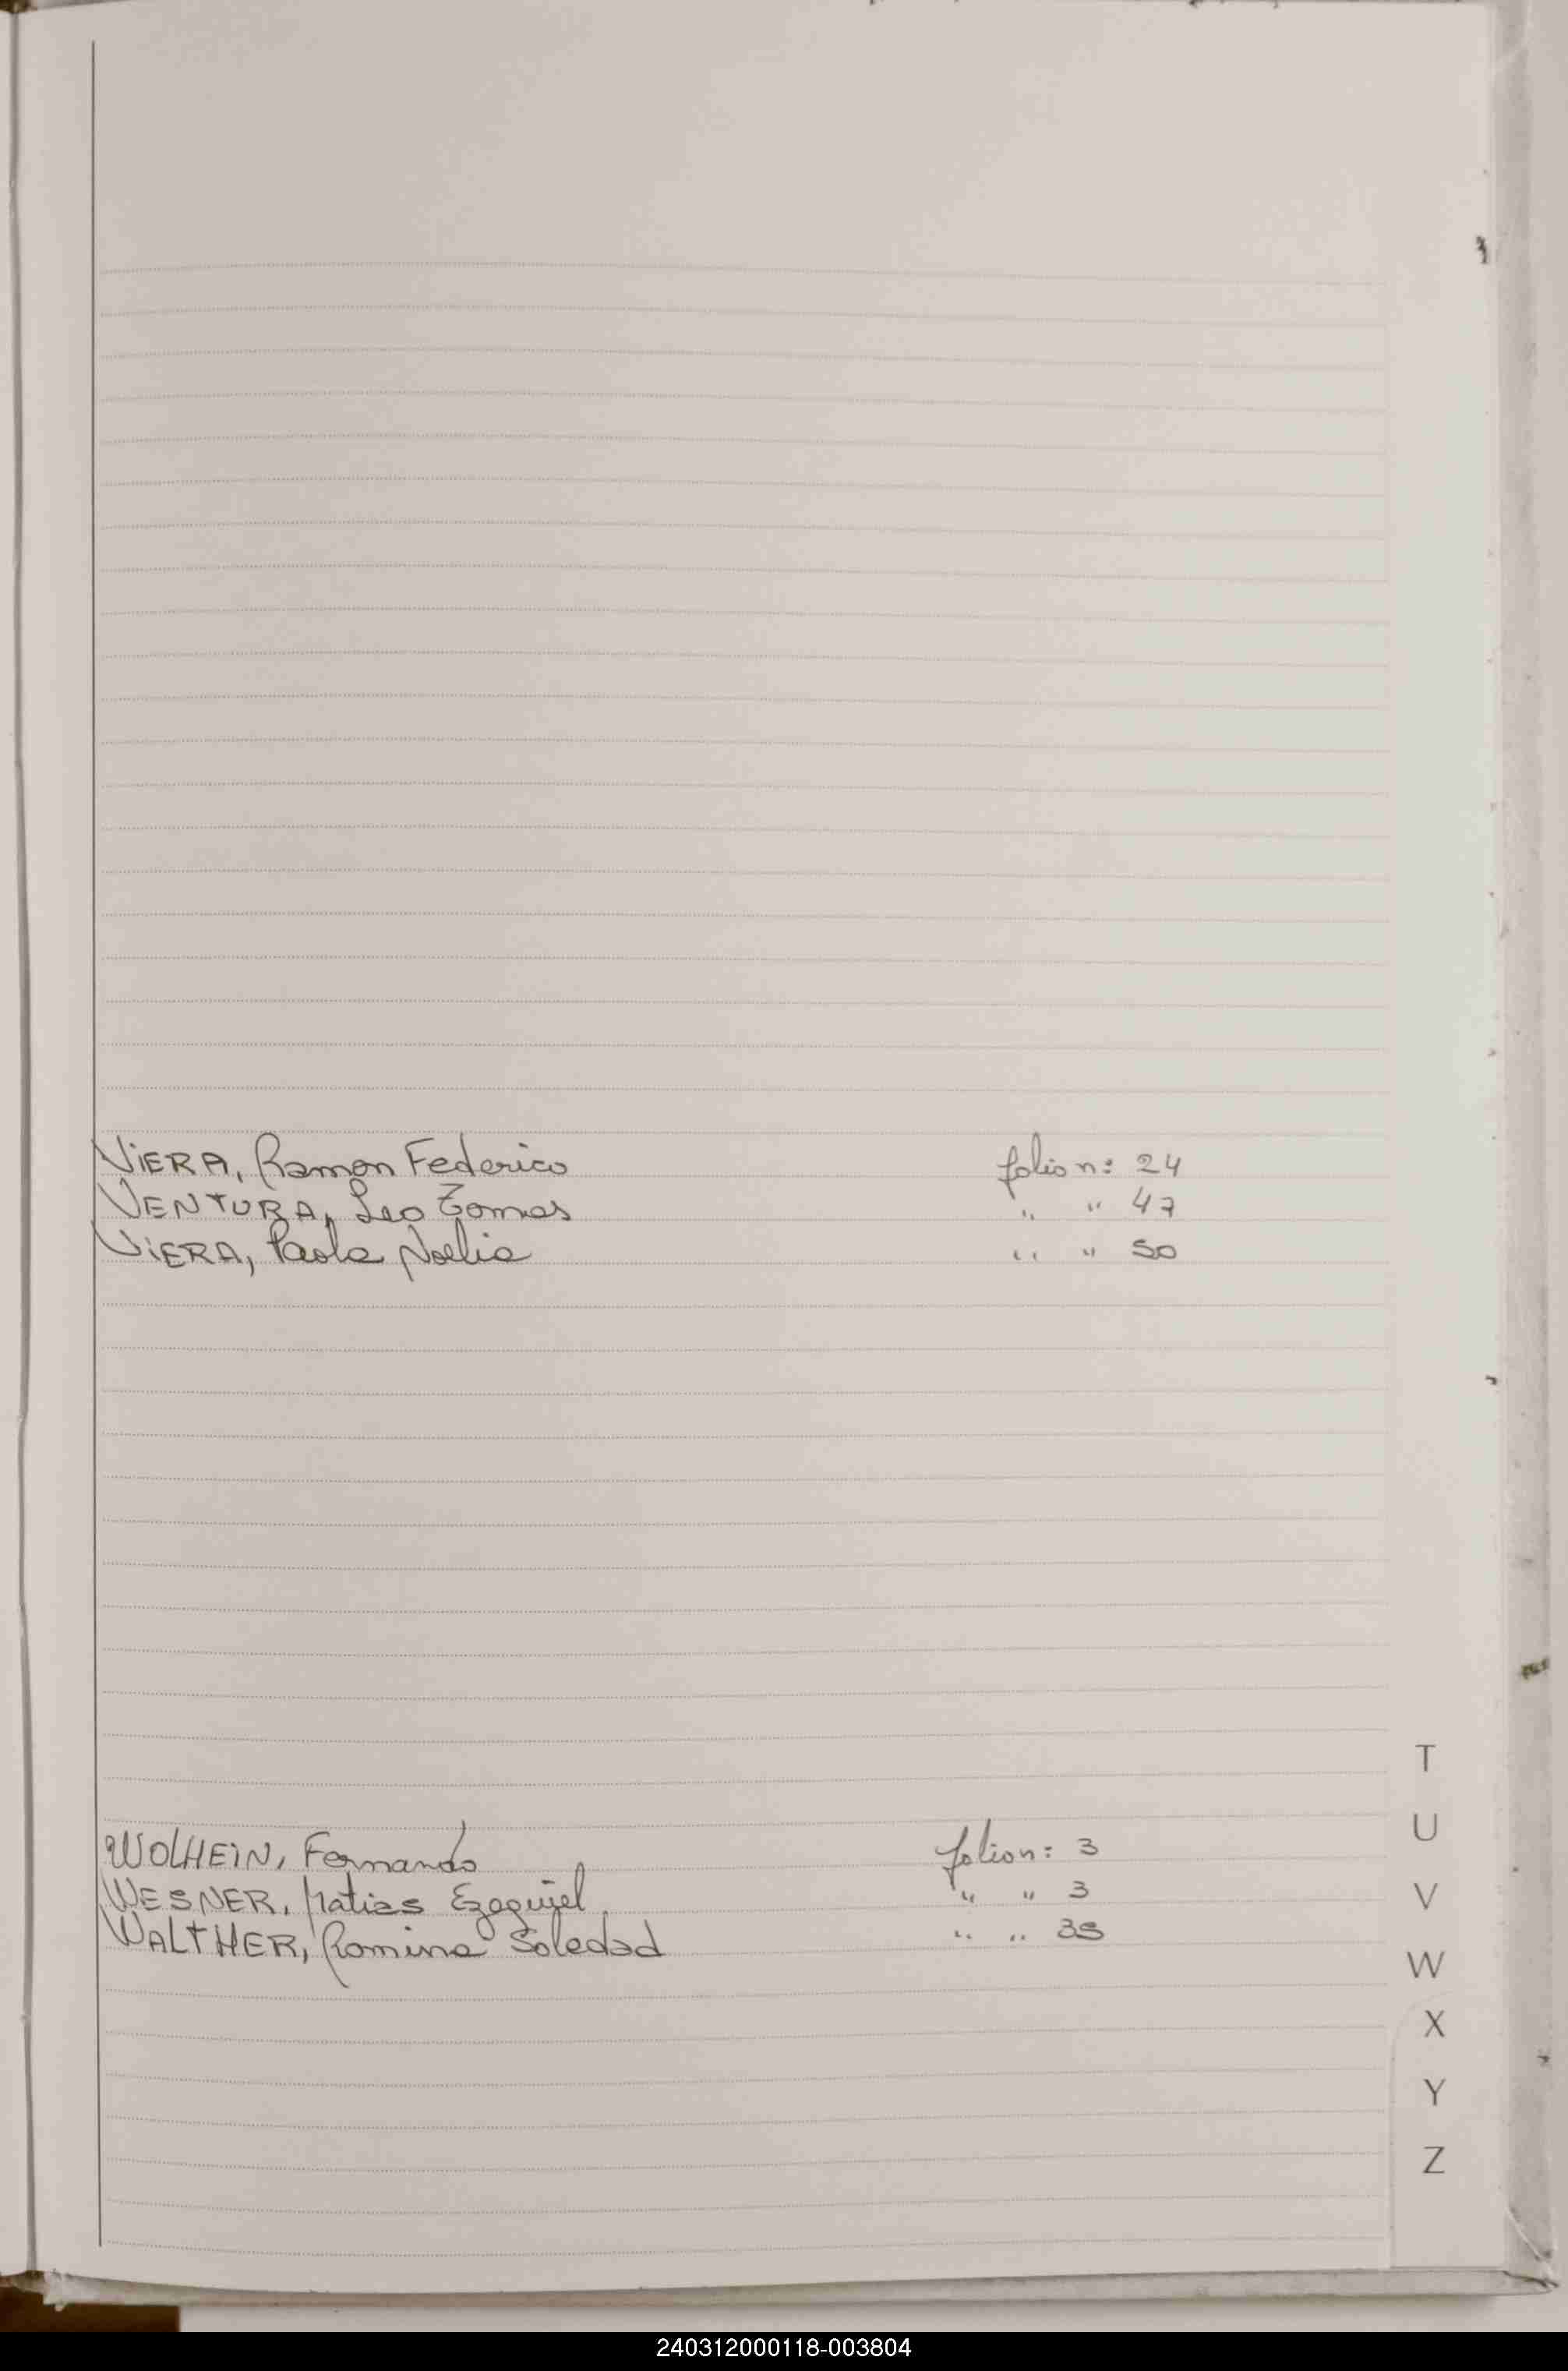 VIERA, Ramon Federico folio n: 24
VENTURA, Leo Tomas " " 47
VIERA, Paola Noelia " " 50
T
WOLHEIN, Fernando folio n: 3
U
WESNER, Matias Ezequiel " " 3
V
WALTHER, Romina Soledad " " 35
W
X
Y
Z
240312000118-003804